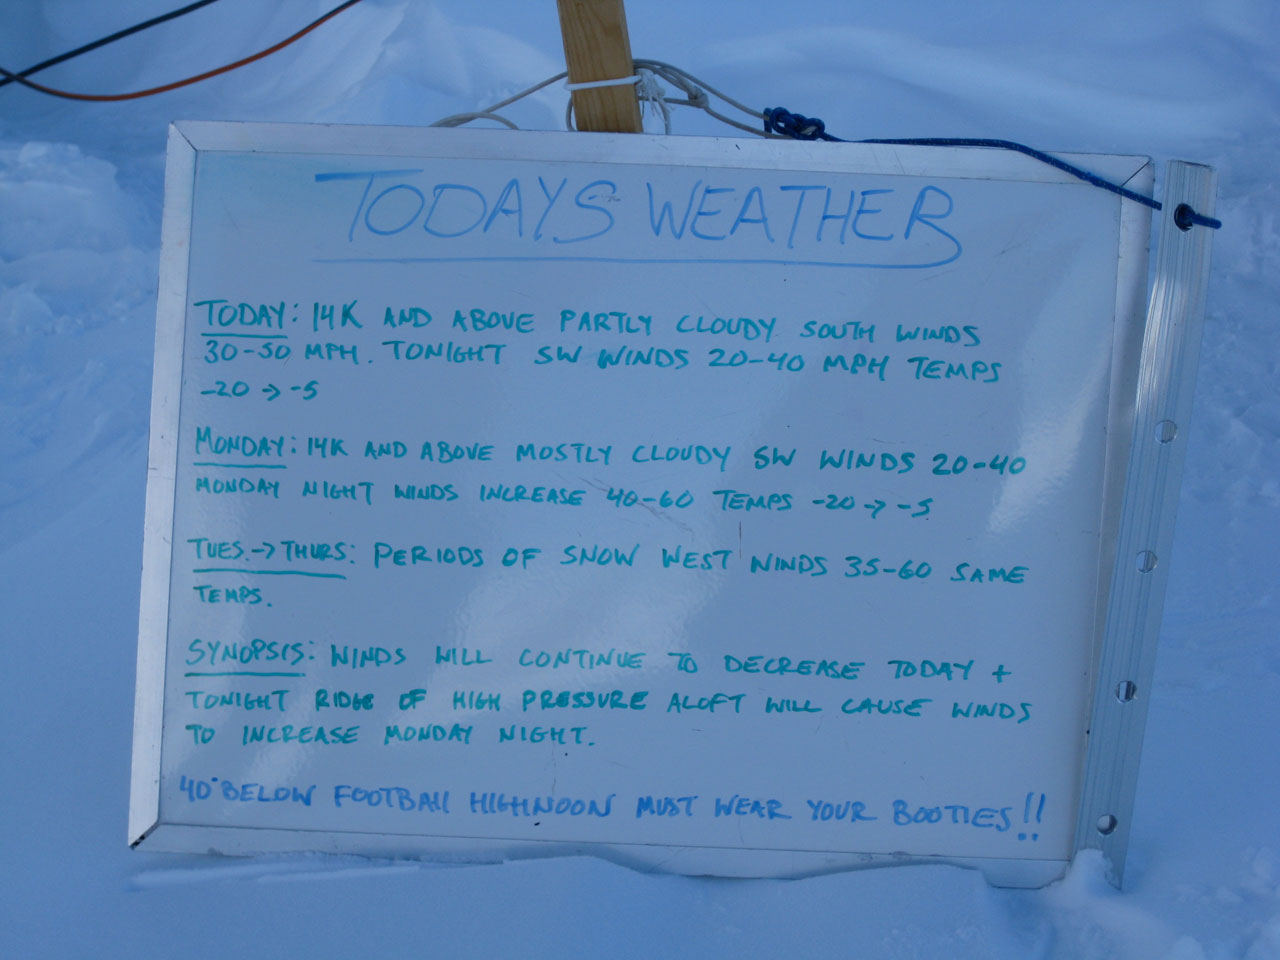 TODAYS WEATHER
TODAY: 14K AND ABOVE PARTLY CLOUDY SOUTH WINDS
30-50 MPH. TONIGHT SW WINDS 20-40 MPH TEMPS
-20 → -5
MONDAY: 14K AND ABOVE MOSTLY CLOUDY SW WINDS 20-40
MONDAY NIGHT WINDS INCREASE 40-60 TEMPS -20 → -5
TUES. → THURS: PERIODS OF SNOW WEST WINDS 35-60 SAME
TEMPS.
SYNOPSIS: WINDS WILL CONTINUE TO DECREASE TODAY +
TONIGHT RIDGE OF HIGH PRESSURE ALOFT WILL CAUSE WINDS
TO INCREASE MONDAY NIGHT.
40° BELOW FOOTBALL HIGHNOON MUST WEAR YOUR BOOTIES!!